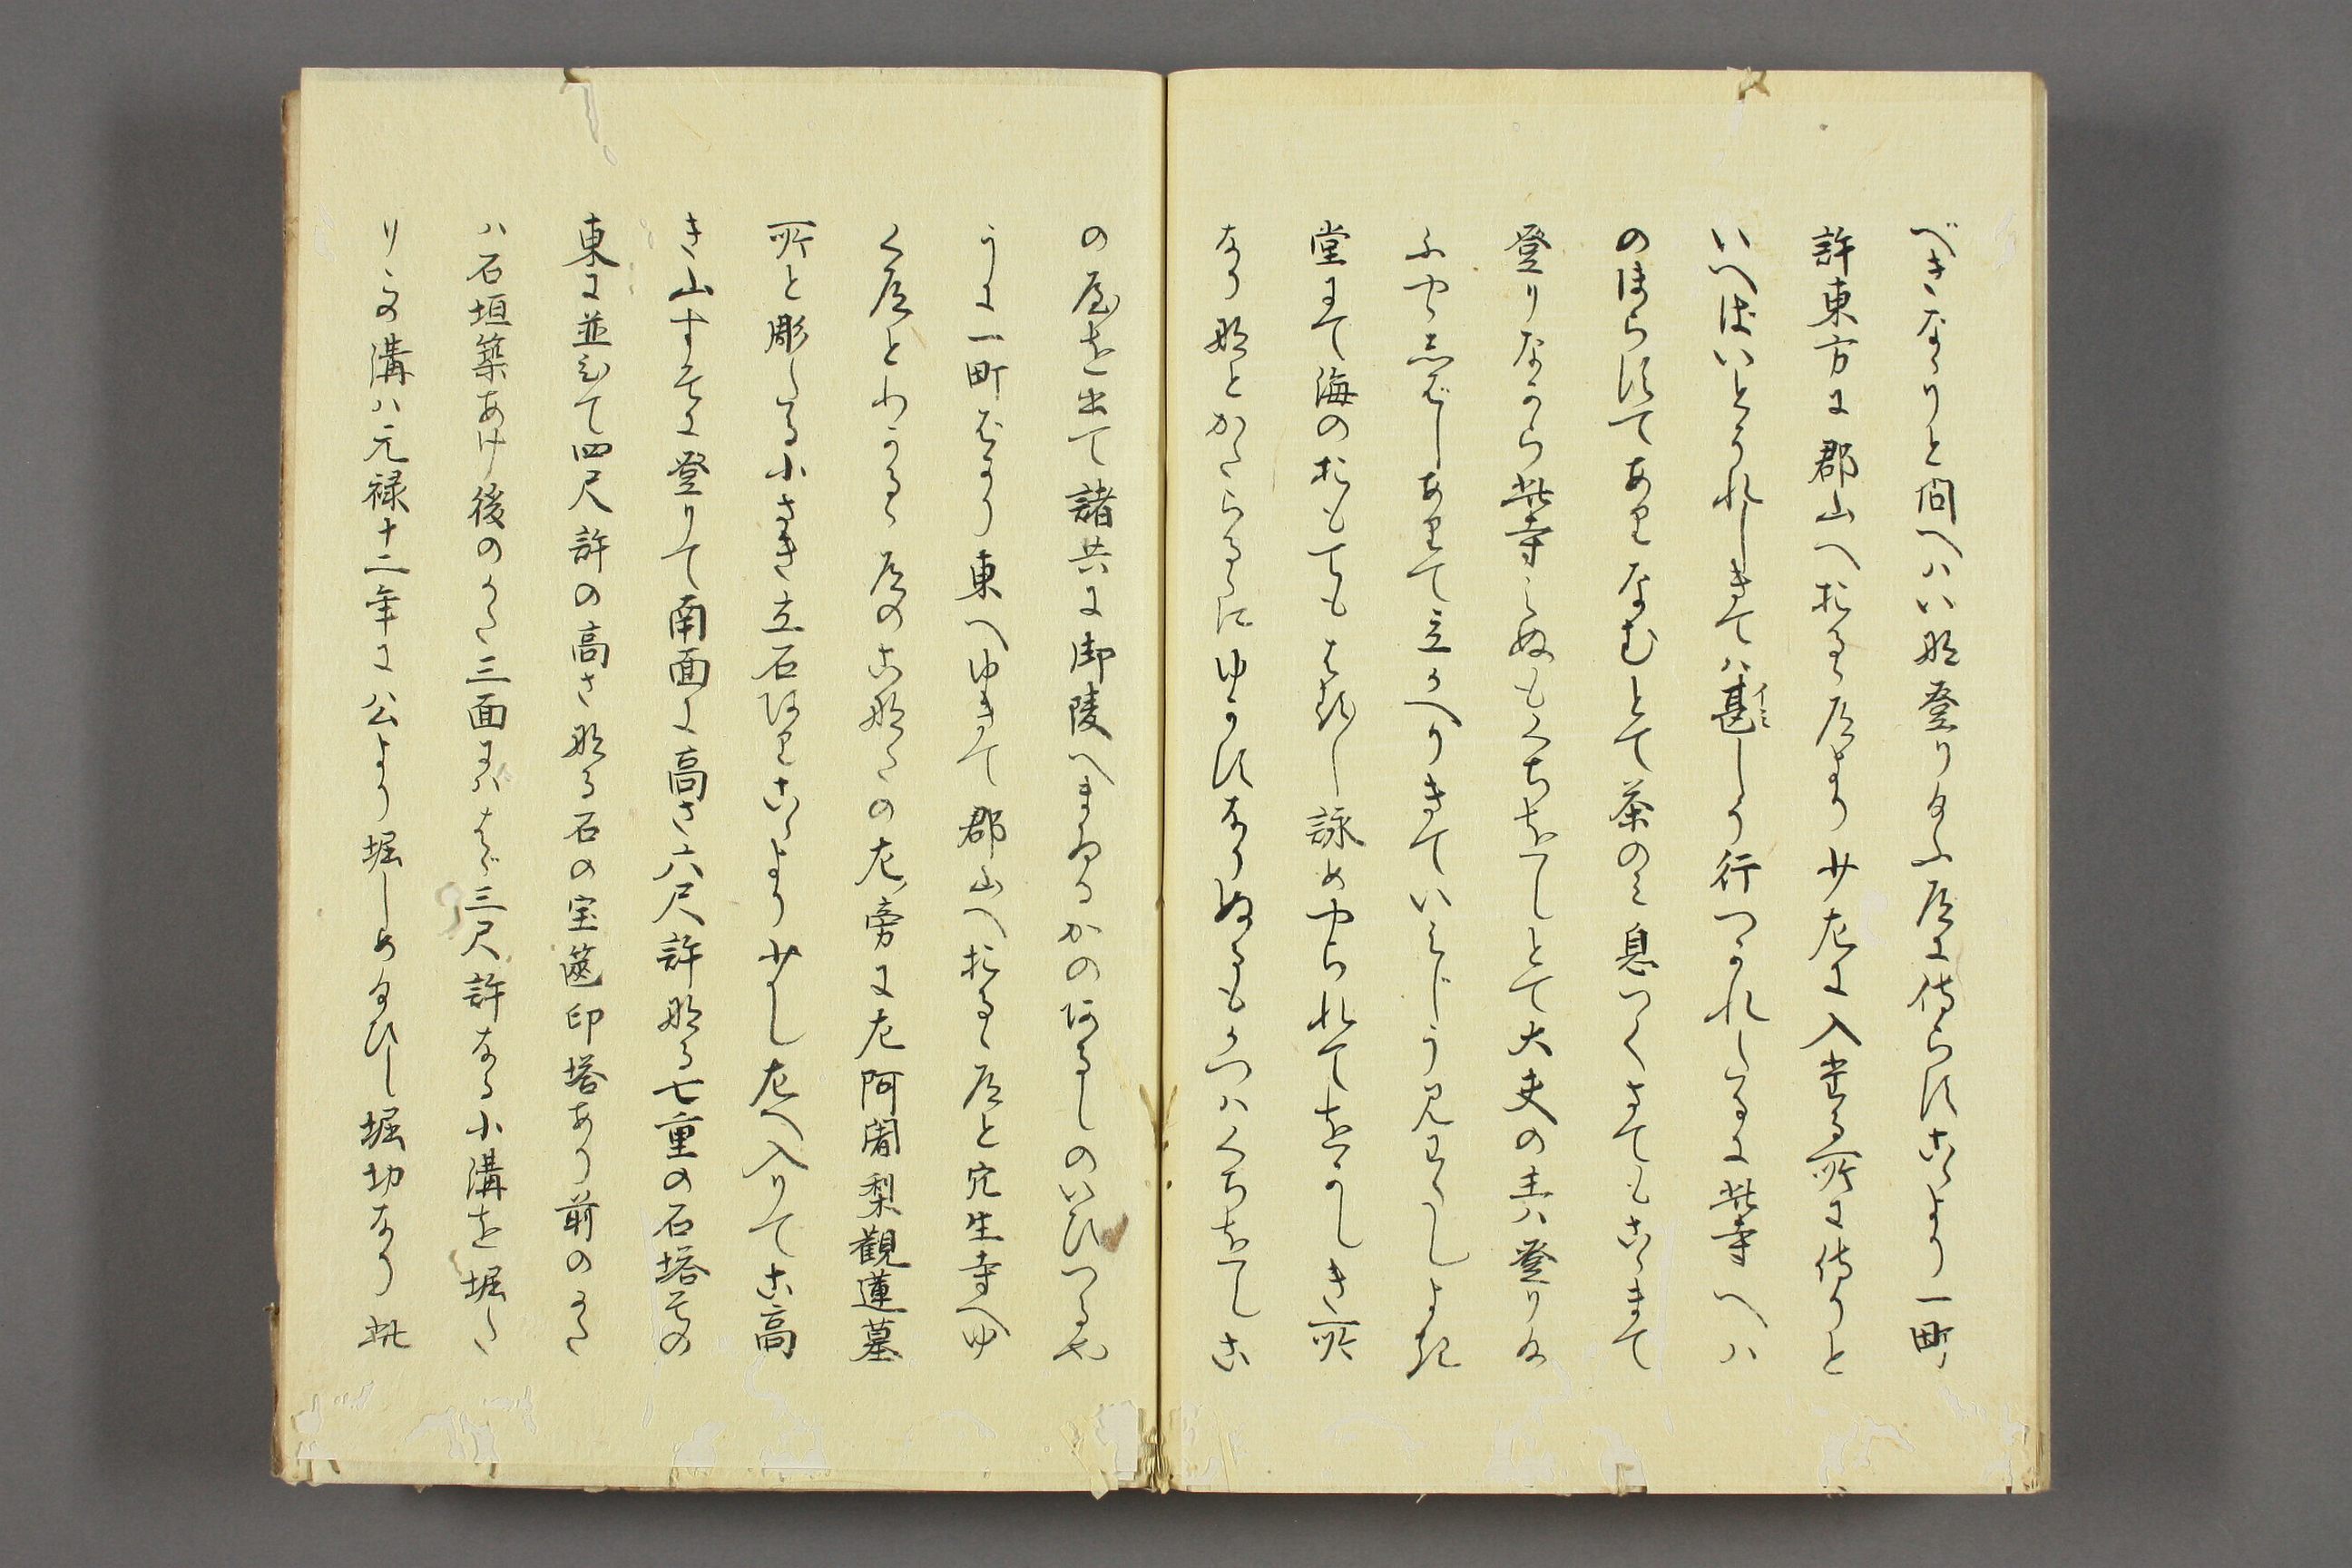 べきなりと問へハい那登り給ふ道に侍らすこゝより一町
許東方に郡山へおるゝ道より少左に入たる所に侍りと
いへばいとうれしきてハ甚しう行つかれしるに此寺へハ
のほらすてあらなむとて茶のミ息つくさてもこゝまて
登りなから此寺ミぬもくちをしとて大夫の主ハ登り給
ふやゝしばしありて立かへりきていミじう見わたしよき
堂にて海のおもてもはるし詠めやられてをかしき所
なり那とかたらるゝにゆかすなりぬるもかつハくちをしこ
の庵を出て諸共に御陵へまゐるかのあるしのいひつるや
うに一町ばかり東へゆきて郡山へおるゝ道と穴生寺へゆ
く道とわかるゝ道のこ那たの左旁に左阿闍梨觀蓮墓
所と彫したる小さき立石ありこゝより少し左へ入りてこ高
き山すそに登りて南面に高さ六尺許那る七重の石塔その
東に並ひて四尺許の高さ那る石の宝篋印塔あり前のかた
ハ石垣築あけ後のかた三面にハはゞ三尺許なる小溝を堀た
りこの溝ハ元禄十二年に公より堀しめ給ひし堀切なり此